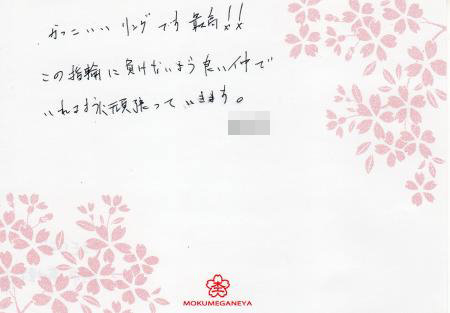 かっこいいリングです 最高!!
この指輪に負けないよう良い仲で
いれるように頑張っていきます。
MOKUMEGANEYA